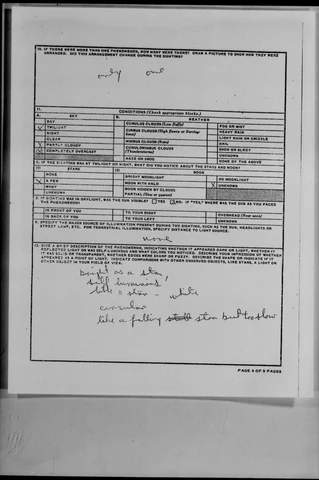 10. IF THERE WERE MORE THAN ONE PHENOMENON, HOW MANY WERE THERE? DRAW A PICTURE TO SHOW HOW THEY WERE
ARRANGED. DID THIS ARRANGEMENT CHANGE DURING THE SIGHTING?
only one
11. CONDITIONS (Check appropriate blocks.)
A. SKY B. WEATHER
DAY CUMULUS CLOUDS (Low fluffy) FOG OR MIST
X TWILIGHT CIRRUS CLOUDS (High fleece or Herring-bone) HEAVY RAIN
NIGHT LIGHT RAIN OR DRIZZLE
CLEAR NIMBUS CLOUDS (Rain) HAIL
X PARTLY CLOUDY CUMULONIMBUS CLOUDS (Thunderstorms) SNOW OR SLEET
COMPLETELY OVERCAST UNKNOWN
HAZE OR SMOG NONE OF THE ABOVE
C. IF THE SIGHTING WAS AT TWILIGHT OR NIGHT, WHAT DID YOU NOTICE ABOUT THE STARS AND MOON?
(1) STARS (2) MOON
NONE BRIGHT MOONLIGHT NO MOONLIGHT
X A FEW MOON WITH HALO X UNKNOWN
MANY MOON HIDDEN BY CLOUDS
UNKNOWN PARTIAL (New or quarter)
IF SIGHTING WAS IN DAYLIGHT, WAS THE SUN VISIBLE? YES NO. IF "YES," WHERE WAS THE SUN AS YOU FACED
THE PHENOMENON?
IN FRONT OF YOU TO YOUR RIGHT OVERHEAD (Near noon)
IN BACK OF YOU TO YOUR LEFT UNKNOWN
SPECIFY THE MAJOR SOURCE OF ILLUMINATION PRESENT DURING THE SIGHTING, SUCH AS THE SUN, HEADLIGHTS OR
STREET LAMP, ETC. FOR TERRESTRIAL ILLUMINATION, SPECIFY DISTANCE TO LIGHT SOURCE.
none
12. GIVE A BRIEF DESCRIPTION OF THE PHENOMENON, INDICATING WHETHER IT APPEARED DARK OR LIGHT, WHETHER IT
REFLECTED LIGHT OR WAS SELF-LUMINOUS AND WHAT COLORS YOU NOTICED. DESCRIBE YOUR IMPRESSION OF WHETHER
IT WAS SOLID OR TRANSPARENT, WHETHER EDGES WERE SHARP OR FUZZY. DESCRIBE THE SHAPE OR INDICATE IF IT
APPEARED AS A POINT OF LIGHT. INDICATE COMPARISONS WITH OTHER OBSERVED OBJECTS, LIKE STARS, A LIGHT OR
OTHER OBJECT IN YOUR FIELD OF VIEW.
bright as a star
self luminous
star - white
circular
like a falling star but too slow
PAGE 4 OF 9 PAGES